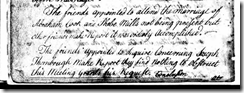 The friends appointed to attend the marriage of
Abraham Cook and Shaha Mills not being present but
other friends Report it was orderly accomplished.
The friends appointed to Enquire Concerning Joseph
Thornbrough make Report they find nothing to obstruct
this Meeting grants his Request